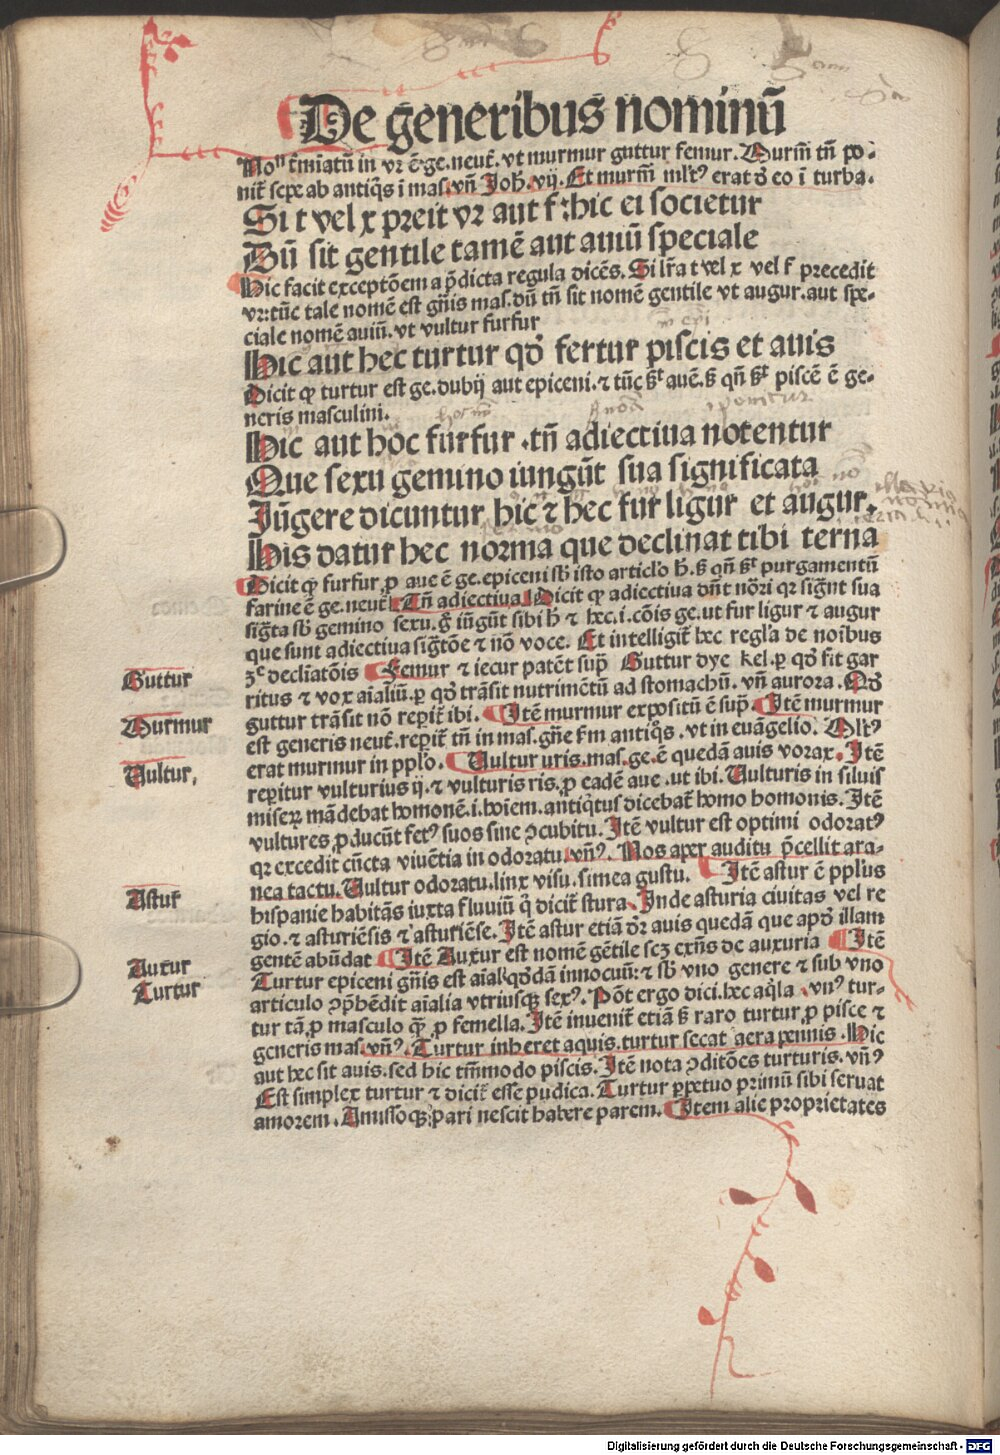 De generibus nominū
Noⁿ t̄mīatū in vr ē ge. neut̄. vt murmur guttur femur. Murm̄ tn̄ po-
nit̄ sepe ab antiq̄s ī mas. vn̄ Joh̄. vij. Et murm̄ mlt⁹ erat d̄ eo ī turba.
Si t vel x preit vr aut f: hic ei societur
Dū sit gentile tamē aut auiū speciale
Hic facit exceptōem a p̄dicta regula dicēs. Si lr̄a t vel x vel f precedit
vr: tūc tale nomē est gn̄is mas. dū tn̄ sit nomē gentile vt augur. aut spe-
ciale nomē auiū. vt vultur furfur
Hic aut hec turtur qd̄ fertur piscis et auis
Dicit ꝙ turtur est ge. dubij aut epiceni. ⁊ tūc sꝭt auē. sꝫ qn̄ sꝭt piscē ē ge-
neris masculini.
Hic aut hoc furfur . tn̄ adiectiua notentur
Que sexu gemino iungūt sua significata
Jūgere dicuntur hic ⁊ hec fur ligur et augur.
His datur hec norma que declinat tibi terna
Dicit ꝙ furfur ꝓ aue ē ge. epiceni sb̄ isto articlo h̄. sꝫ qn̄ sꝭt purgamentū
farine ē ge. neut̄. Tn̄ adiectiua Dicit ꝙ adiectiua dn̄t nōri qꝛ sigt̄ sua
sigt̄a sb̄ gemino sexu. g̊ iūgūt sibi h̄ ⁊ hec. i. cōis ge. ut fur ligur ⁊ augur
que sunt adiectiua sigt̄ōe ⁊ nō voce. Et intelligit̄ hec regl̄a de noībus
3ᶜ decliatōis Femur ⁊ iecur patēt sup̄ Guttur dye kel. ꝑ qd̄ fit gar
ritus ⁊ vox aīaliū. ꝑ qd̄ trāsit nutrimētū ad stomachū. vn̄ aurora. Qd̄
guttur trāsit nō reperit̄ ibi. Jtē murmur expositū ē sup̄. Jtē murmur
est generis neut̄. reperit̄ tn̄ in mas. gn̄e s̄m antiq̊s. vt in euāgelio. Mlt⁹
erat murmur in pplo̅. Vultur uris. mas. ge. ē quedā auis vorax. Jtē
reperitur vulturius ij. ⁊ vulturis ris. ꝓ eadē aue . ut ibi. Vulturis in siluis
miseꝝ mādebat homonē. i. hoīem. antiq̄tus dicebat̄ homo homonis. Jtē
vultures ꝓducūt fet⁹ suos sine ꝯcubitu. Jtē vultur est optimi odorat⁹
qꝛ excedit cūcta viuētia in odoratu. vn̄⁹. Nos aper auditu p̄cellit ara-
nea tactu. Vultur odoratu. linx visu. simea gustu. Jtē astur ē ppl̄us
hispanie habitās iuxta fluuiū q̄ dicit̄ stura. Jnde asturia ciuitas vel re
gio. ⁊ asturiēsis ⁊ asturiēse. Jtē astur etiā dr̄ auis quedā que apd̄ illam
gentē abūdat Jtē Auxur est nomē gētile scꝫ exn̄s de auxuria Jtē
Turtur epiceni gn̄is est aīal qd̄dā innocuū: ⁊ sb̄ vno genere ⁊ sub vno
articulo ꝯp̄hēdit aīalia vtriusqꝫ sex⁹. Pōt ergo dici. hec aq̄la . vn⁹ tur-
tur tā ꝓ masculo q̄ꝫ ꝓ femella. Jtē inuenit̄ etiā sꝫ raro turtur ꝓ pisce ⁊
generis mas. vn̄⁹. Turtur inheret aquis. turtur secat aera pennis. Hic
aut hec sit auis. sed hic tm̄modo piscis. Jtē nota ꝯditōes turturis. vn̄⁹
Est simplex turtur ⁊ dicit̄ esse pudica. Turtur ꝑpetuo primū sibi seruat
amorem. Amissoqꝫ pari nescit habere parem. Jtem alie proprietates
Guttur
Murmur
Vultur,
Astur
Auxur
Turtur
Digitalisierung gefördert durch die Deutsche Forschungsgemeinschaft - DFG